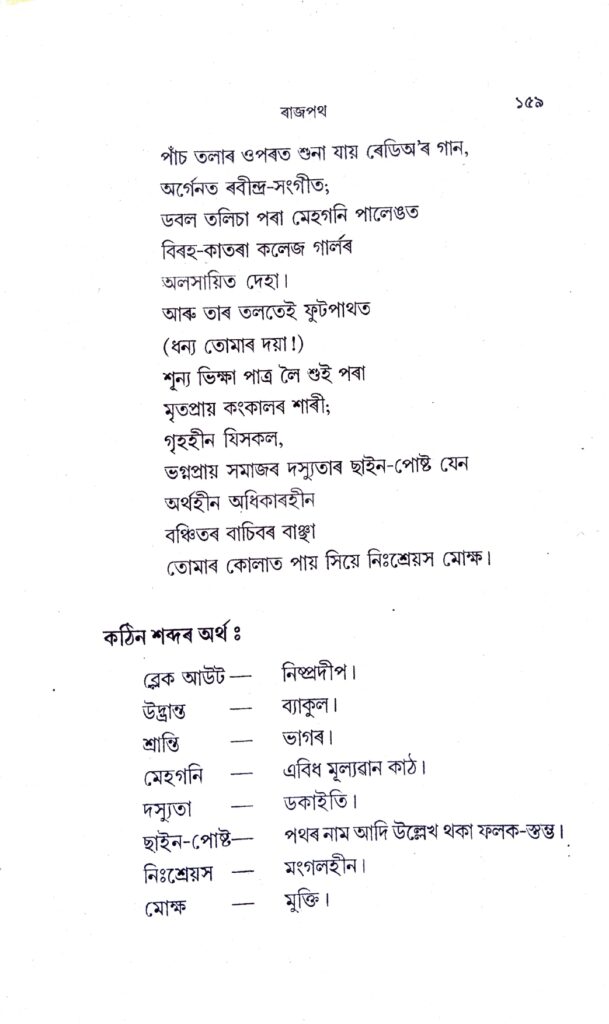 ৰাজপথ ১৫৯
পাঁচ তলাৰ ওপৰত শুনা যায় ৰেডিঅ'ৰ গান,
অৰ্গেনত ৰবীন্দ্ৰ-সংগীত;
ডবল তলিচা পৰা মেহগনি পালেঙত
বিৰহ-কাতৰা কলেজ গাৰ্লৰ
অলসায়িত দেহা।
আৰু তাৰ তলতেই ফুটপাথত
(ধন্য তোমাৰ দয়া!)
শূন্য ভিক্ষা পাত্ৰ লৈ শুই পৰা
মৃতপ্ৰায় কংকালৰ শাৰী;
গৃহহীন যিসকল,
ভগ্নপ্ৰায় সমাজৰ দস্যুতাৰ ছাইন-পোষ্ট যেন
অৰ্থহীন অধিকাৰহীন
বঞ্চিতৰ বাচিবৰ বাঞ্ছা
তোমাৰ কোলাত পায় সিয়ে নিঃশ্ৰেয়স মোক্ষ।
কঠিন শব্দৰ অৰ্থ ঃ
ব্লেক আউট — নিষ্প্ৰদীপ।
উদ্ভ্ৰান্ত — ব্যাকুল।
শ্ৰান্তি — ভাগৰ।
মেহগনি — এবিধ মূল্যৱান কাঠ।
দস্যুতা — ডকাইতি।
ছাইন-পোষ্ট— পথৰ নাম আদি উল্লেখ থকা ফলক-স্তম্ভ।
নিঃশ্ৰেয়স — মংগলহীন।
মোক্ষ — মুক্তি।